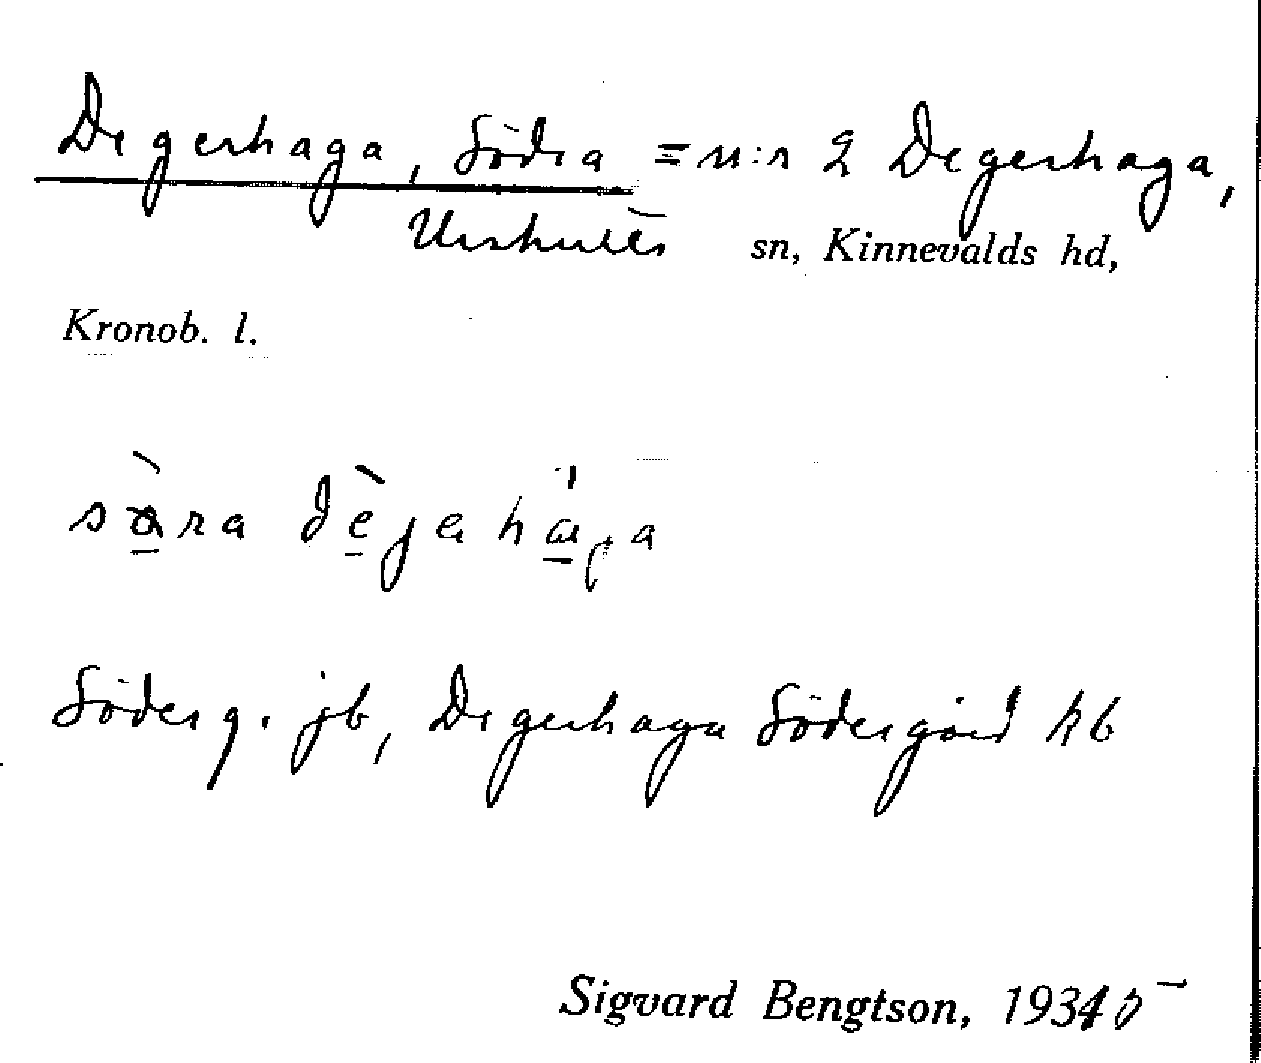 Degerhaga, Södra = n:r 2 Degerhaga,
Urshults sn, Kinnevalds hd,
Kronob. l.
Söderg. jb, Degerhaga Södergård kb
Sigvard Bengtson, 1935